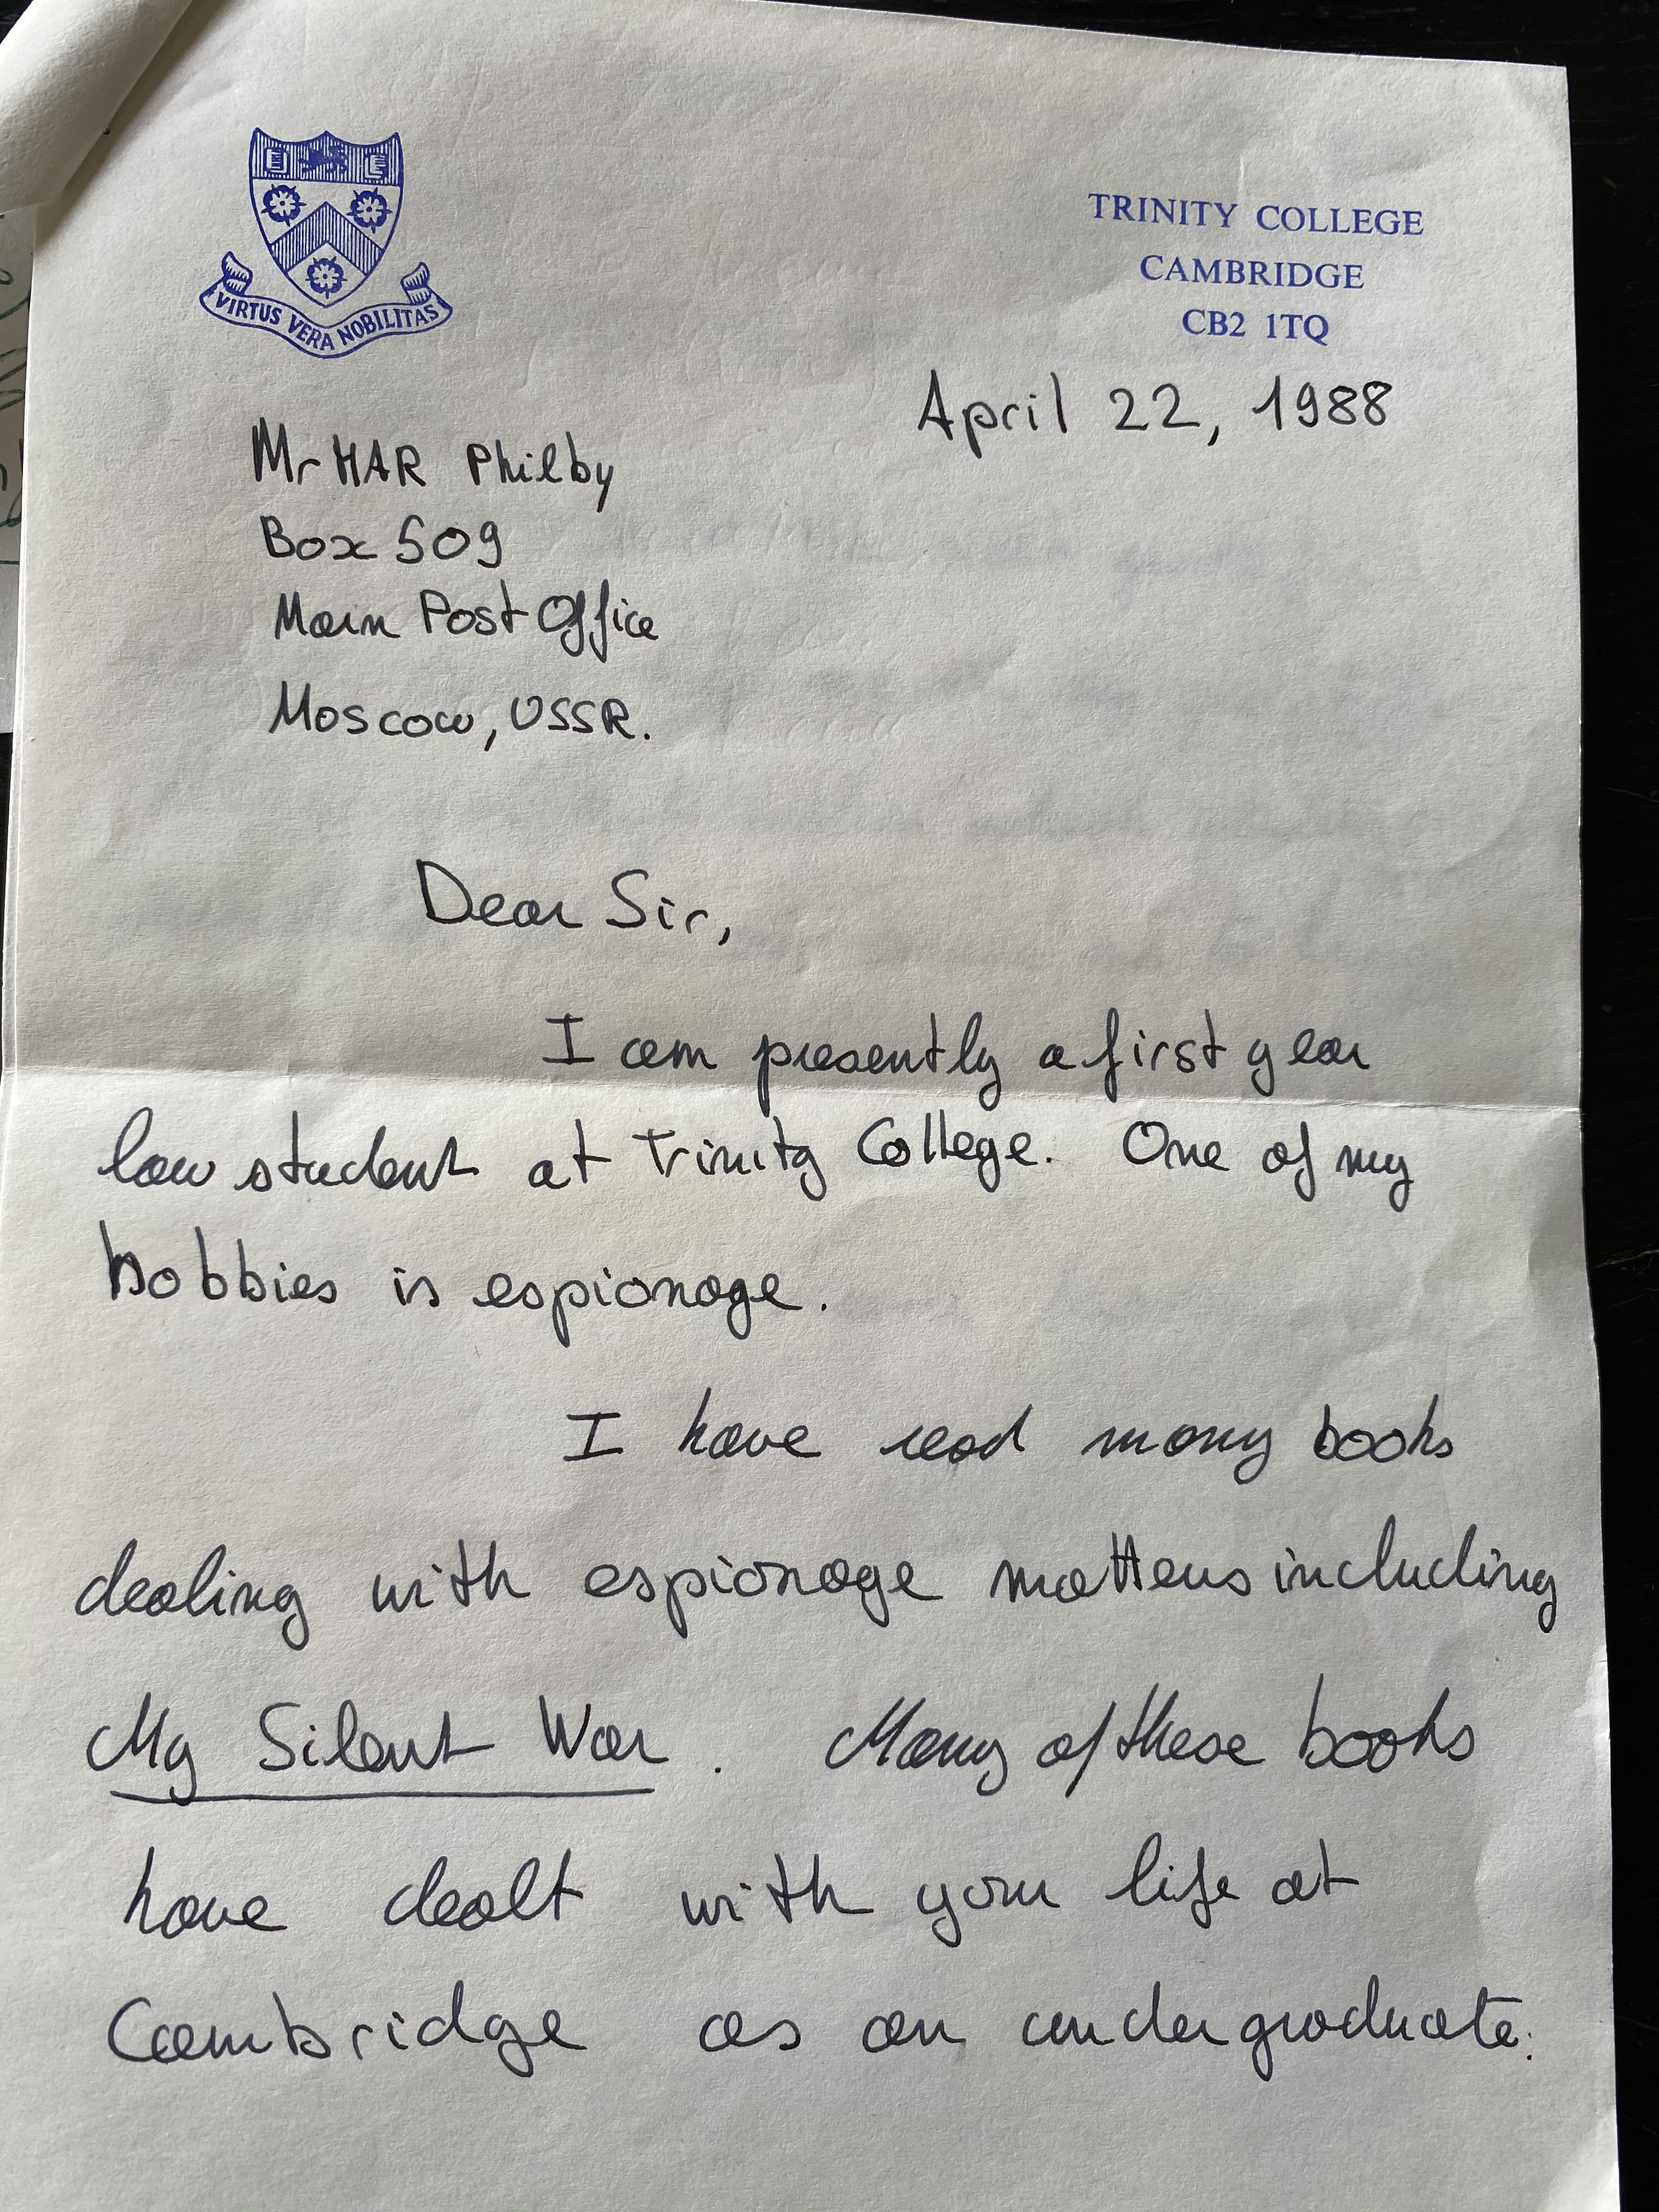 VIRTUS VERA NOBILITAS
TRINITY COLLEGE
CAMBRIDGE
CB2 1TQ
April 22, 1988
Mr HAR Philby
Box 509
Main Post Office
Moscow, USSR.
Dear Sir,
I am presently a first year
law student at Trinity College. One of my
hobbies is espionage.
I have read many books
dealing with espionage matters including
My Silent War. Many of these books
have dealt with your life at
Cambridge as an undergraduate.